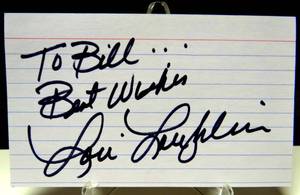 To Bill...
Best Wishes
Lori Loughlin